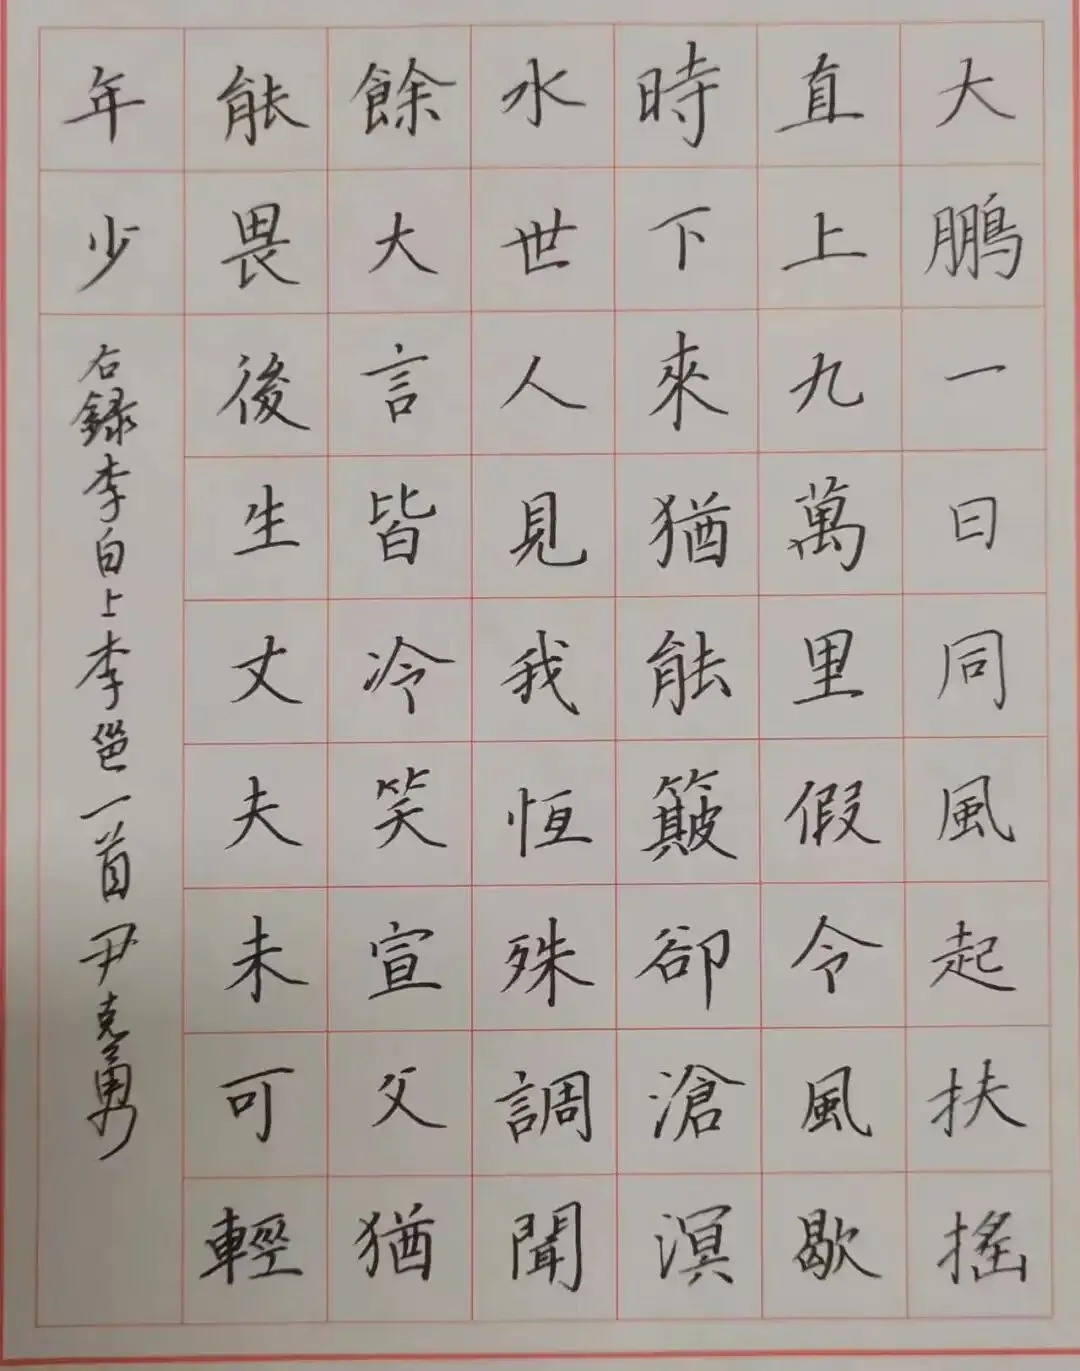 大鵬一日同風起扶搖
直上九萬里假令風歇
時下來猶能簸卻滄溟
水世人見我恆殊調聞
餘大言皆冷笑宣父猶
能畏後生丈夫未可輕
年少
右錄李白上李邕一首尹克勇